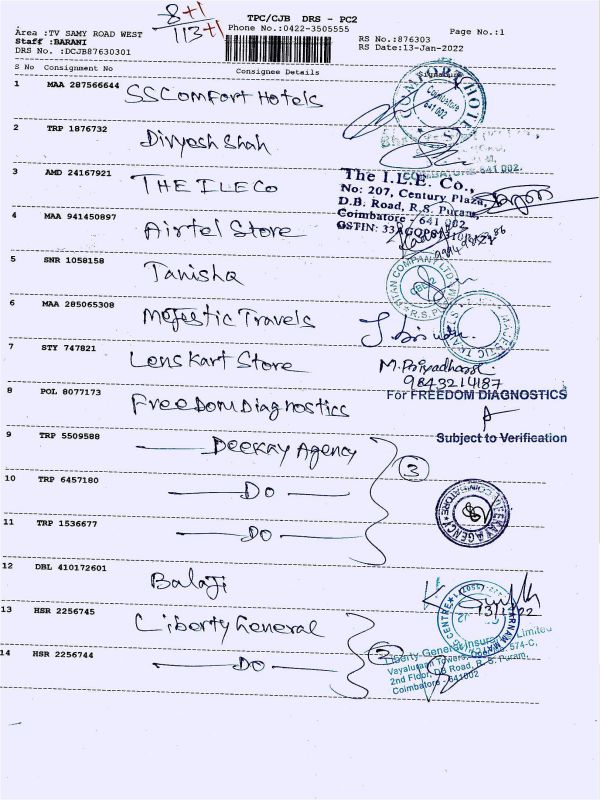 8+1
113+1
TPC/CJB DRS - PC2
Phone No.:0422-3505555
Page No.:1
Area :TV SAMY ROAD WEST
Staff :BARANI
DRS No. :DCJB87630301
RS No.:876303
RS Date:13-Jan-2022
S No Consignment No Consignee Details Signature
1 MAA 287566644 SSComfort Hotels
COMFORT HOTEL
Coimbatore
641 002
2 TRP 1876732 Divyesh Shah
641 002.
3 AMD 24167921 THE ILE Co
The I.L.E. Co.,
No: 207, Century Plaza,
D.B. Road, R.S. Puram,
Coimbatore - 641 002
GSTIN:
4 MAA 941450897 Airtel Store
5 SNR 1058158 Tanishq
TITAN COMPANY LTD
R.S. PURAM
6 MAA 285065308 Majestic Travels
MAJESTIC TRAVELS
7 STY 747821 Lenskart Store
M. Priyadharsi
9843214187
8 POL 8077173 FreeDom Diagnostics
For FREEDOM DIAGNOSTICS
Subject to Verification
9 TRP 5509588 Deekay Agency
3
10 TRP 6457180 Do
11 TRP 1536677 Do
AGENCY
COIMBATORE
12 DBL 410172601 Balaji
13/1/22
CENTRE
13 HSR 2256745 Liberty General
2
14 HSR 2256744 Do
Liberty General Insurance Limited
2nd Floor, DB Road, R. S. Puram,
Coimbatore - 641002